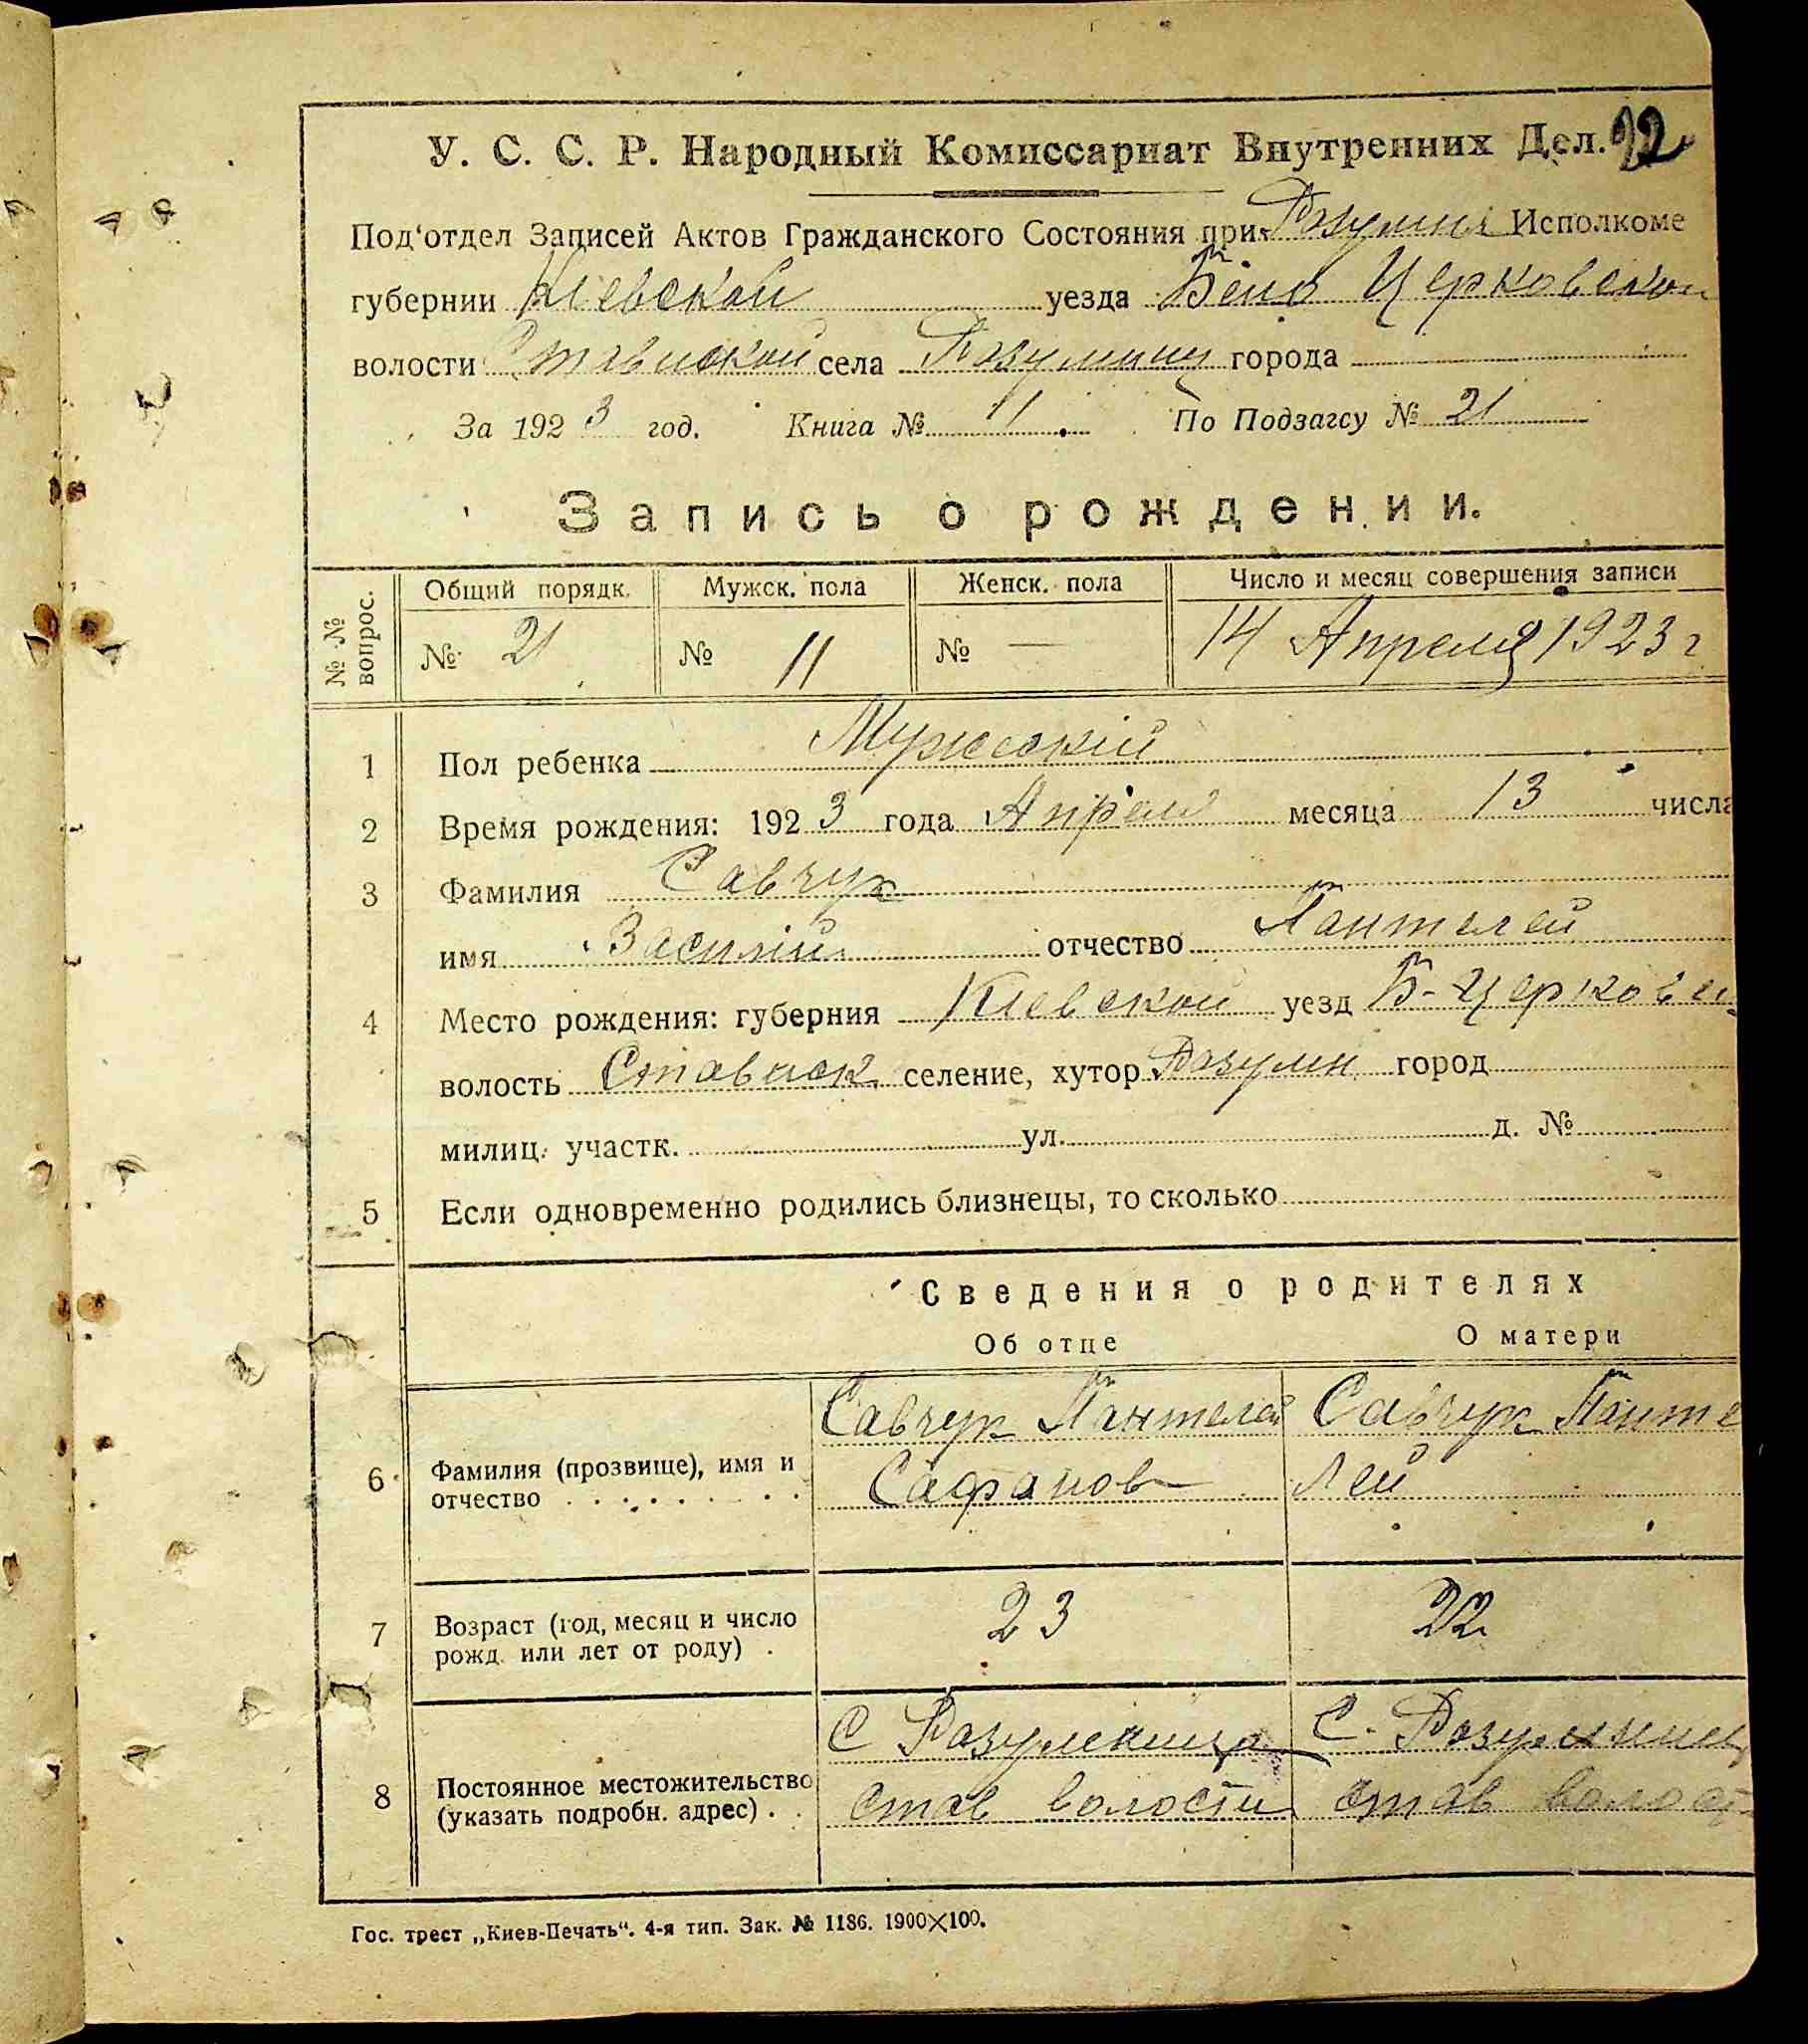 У. С. С. Р. Народный Комиссариат Внутренних Дел. 92
Под'отдел Записей Актов Гражданского Состояния при Розумниц Исполкоме
губернии Киевской уезда Бело Церковской
волости Ставиской села Розумниц города
За 1923 год. Книга № 11. По Подзагсу № 21
Запись о рождении.
№ № вопрос. Общий порядк. Мужск. пола Женск. пола Число и месяц совершения записи
№ 21 № 11 № — 14 Апреля 1923 г
1 Пол ребенка Мужеский
2 Время рождения: 1923 года Апреля месяца 13 числа
3 Фамилия Савчук
имя Василий отчество Пантелей
4 Место рождения: губерния Киевской уезд Б-Церковск
волость Стависк селение, хутор Розумн город
милиц. участк. ул. д. №
5 Если одновременно родились близнецы, то сколько
Сведения о родителях
Об отце О матери
Савчук Пантелей Савчук Панте
6 Фамилия (прозвище), имя и отчество Сафанов лей
7 Возраст (год, месяц и число рожд. или лет от роду) 23 22
С С. 
8 Постоянное местожительство (указать подробн. адрес) Став волости Став волости
Гос. трест „Киев-Печать“. 4-я тип. Зак. № 1186. 1900×100.